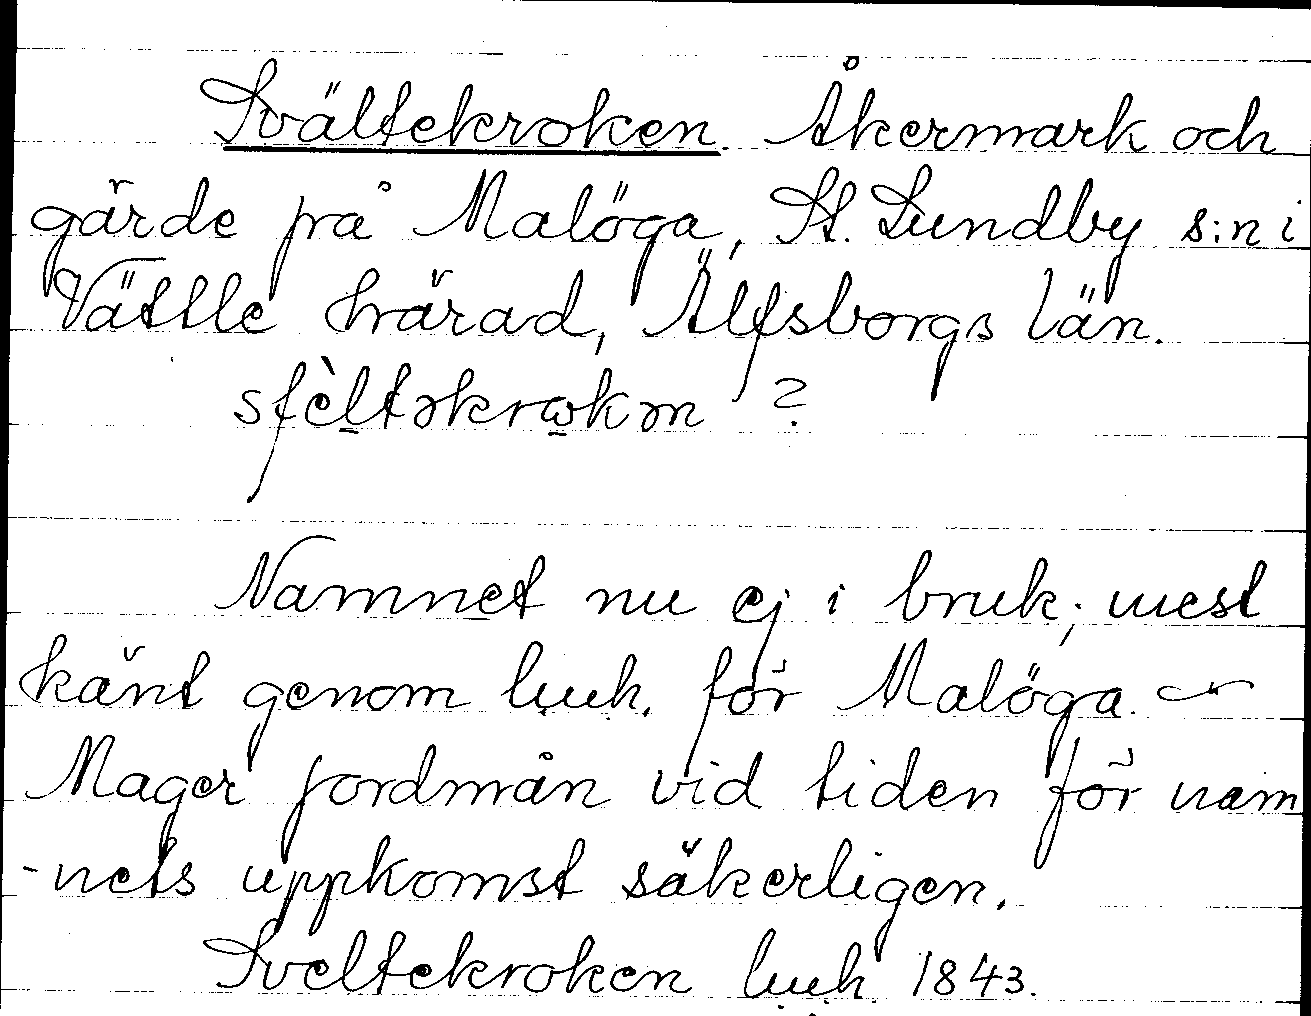 Svältekroken. Åkermark och
gärde på Malöga, St. Lundby s:n i
Vättle härad, Älfsborgs län.
sfèltəkrωkən ?
Namnet nu ej i bruk; mest
känt genom luuh. för Malöga. ~
Mager jordmån vid tiden för nam
-nets uppkomst säkerligen.
Sveltekroken luuh 1843.